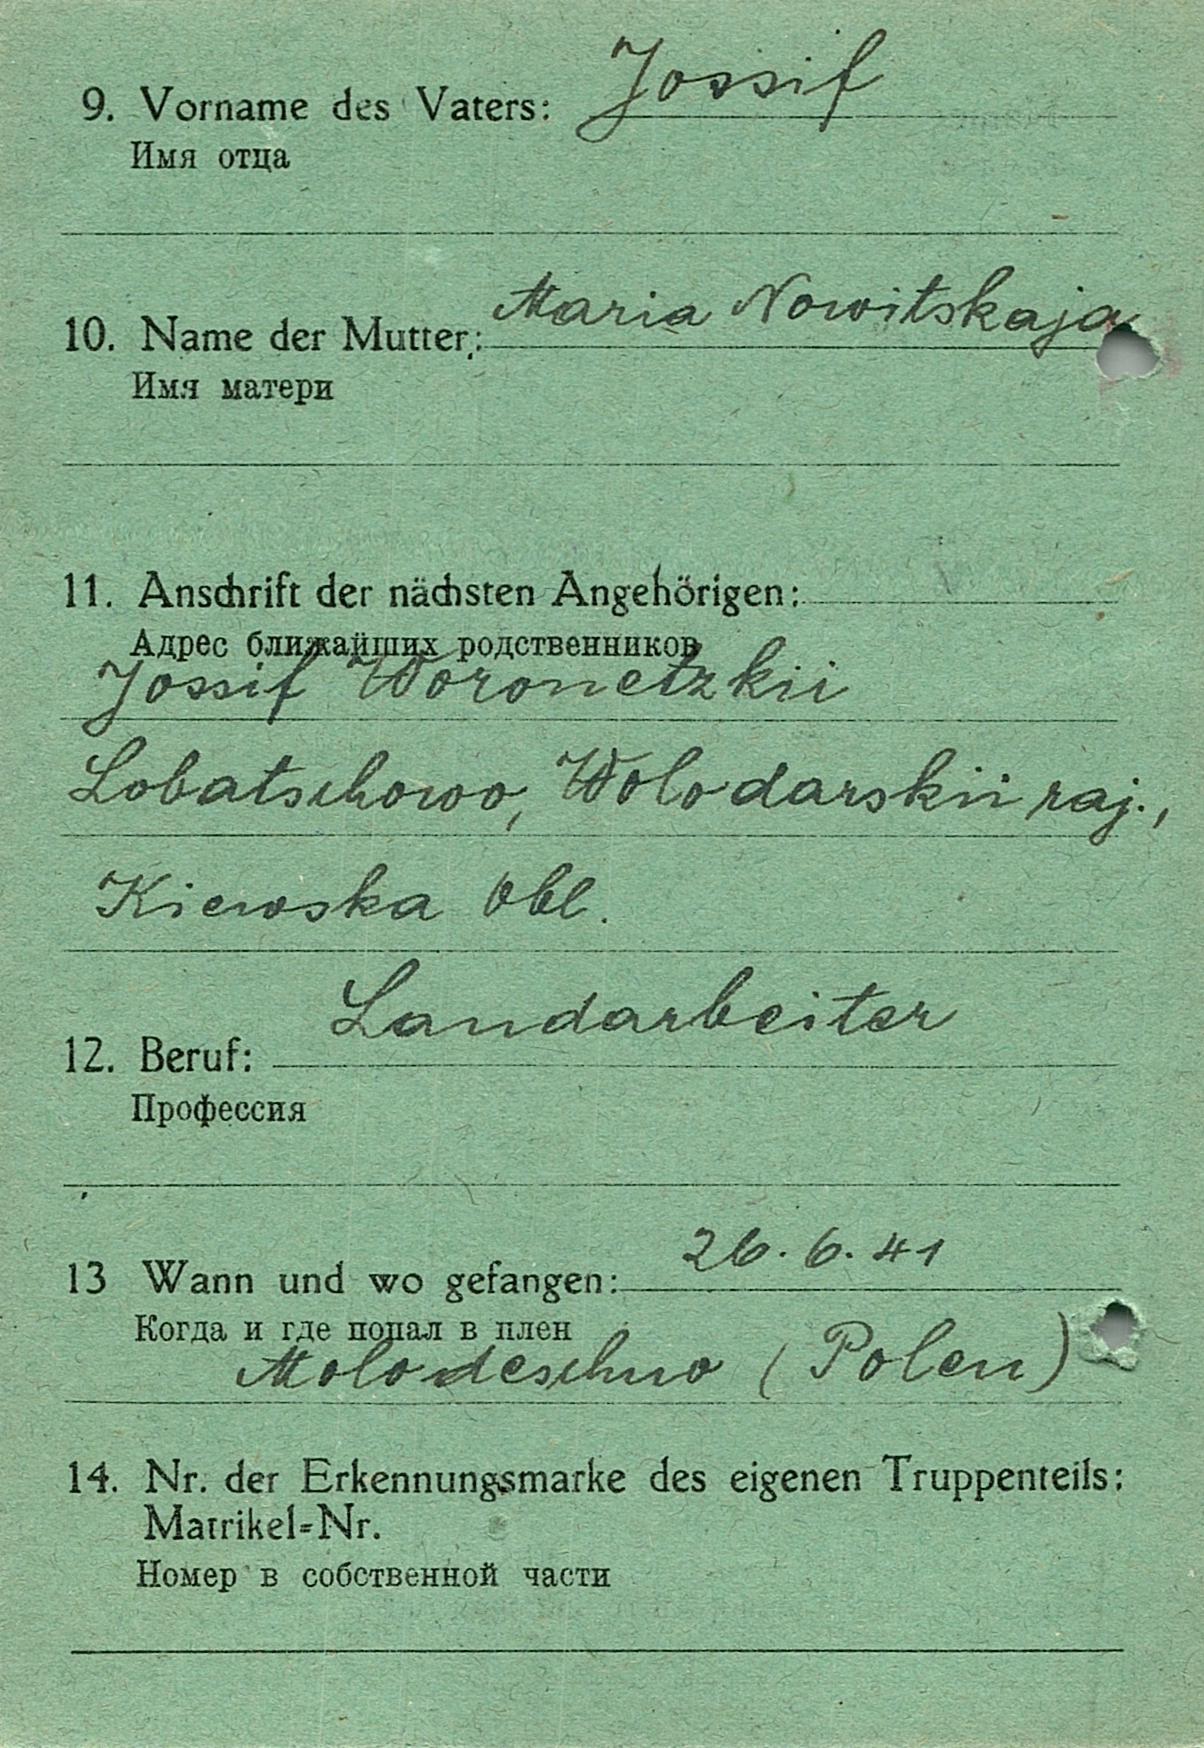 9. Vorname des Vaters: Jossif
Имя отца
10. Name der Mutter: Maria Nowitskaja
Имя матери
11. Anschrift der nächsten Angehörigen:
Адрес ближайших родственников
Jossif Woronetzkii
Lobatschowo, Wolodarskii raj.,
Kiewska Obl.
12. Beruf: Landarbeiter
Профессия
13 Wann und wo gefangen: 26.6.41
Когда и где попал в плен
Molodeschno (Polen)
14. Nr. der Erkennungsmarke des eigenen Truppenteils:
Matrikel=Nr.
Номер в собственной части